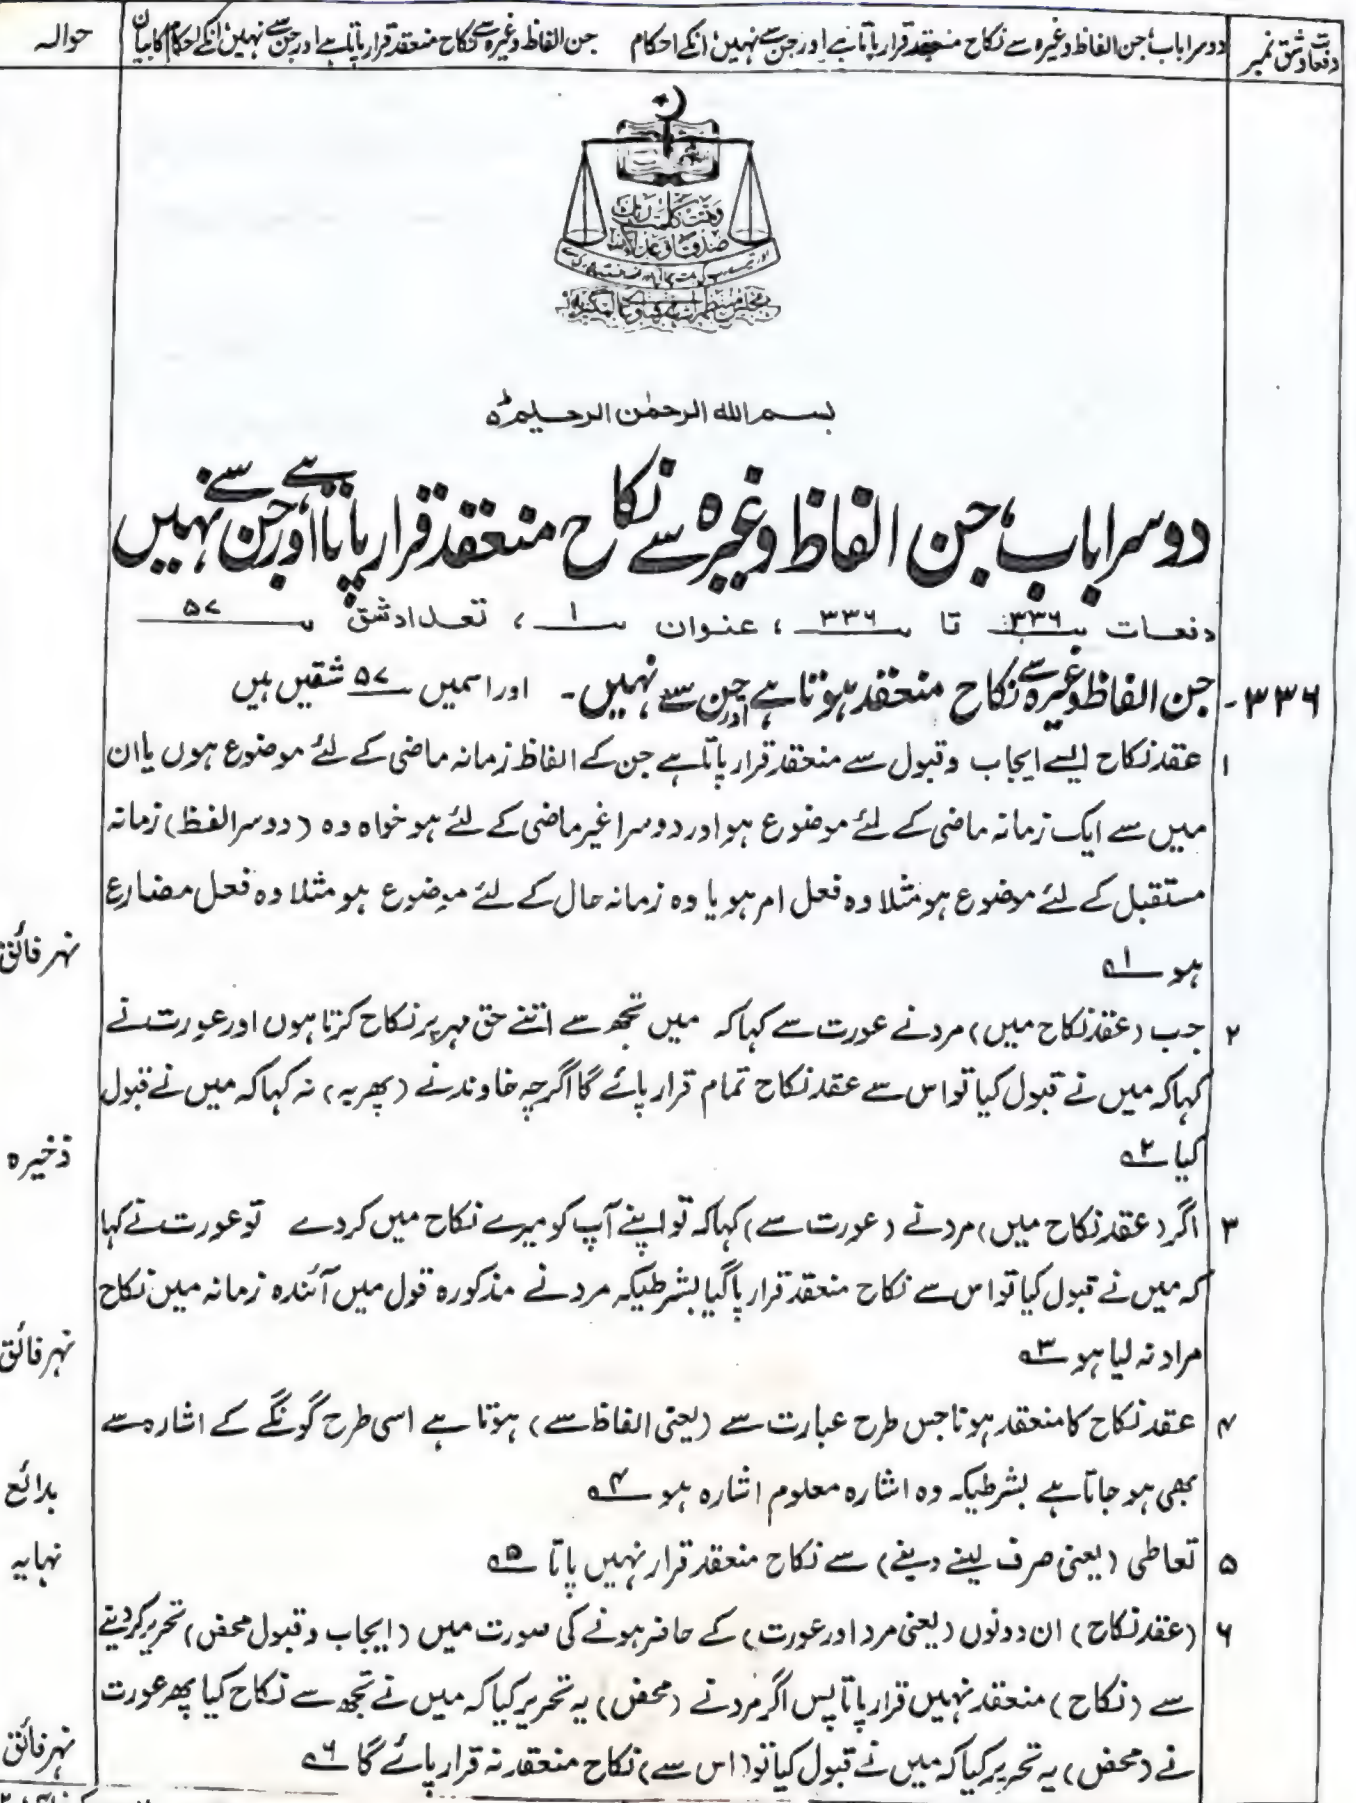 دفعات و شق نمبر
دوسرا باب؛ جن الفاظ وغیرہ سے نکاح منعقد قرار پاتا ہے اور جن سے نہیں؛ انکے احکام
جن الفاظ وغیرہ سے نکاح منعقد قرار پاتا ہے اور جن سے نہیں؛ انکے احکام کا بیان
حوالہ
وتمت کلمت ربک
صدقا وعدلا
بسم الله الرحمٰن الرحیم
دوسرا باب؛ جن الفاظ وغیرہ سے نکاح منعقد قرار پاتا ہے اور جن سے نہیں
دفعات ۳۳۶ تا ۳۳۶ ، عنوان ۱ ، تعداد شق ۵۷
۳۳۶- جن الفاظ وغیرہ سے نکاح منعقد ہوتا ہے اور جن سے نہیں۔ اور اسمیں ۵۷ شقیں ہیں
۱ عقد نکاح ایسے ایجاب وقبول سے منعقد قرار پاتا ہے جن کے الفاظ زمانہ ماضی کے لئے موضوع ہوں یا ان
میں سے ایک زمانہ ماضی کے لئے موضوع ہو اور دوسرا غیر ماضی کے لئے ہو خواہ وہ (دوسرا لفظ) زمانہ
مستقبل کے لئے موضوع ہو مثلا وہ فعل امر ہو یا وہ زمانہ حال کے لئے موضوع ہو مثلا وہ فعل مضارع
ہو ۱ نہر فائق
۲ جب (عقد نکاح میں) مرد نے عورت سے کہا کہ میں تجھ سے اتنے حق مہر پر نکاح کرتا ہوں اور عورت نے
کہا کہ میں نے قبول کیا تو اس سے عقد نکاح تمام قرار پائے گا اگرچہ خاوند نے (پھر یہ) نہ کہا کہ میں نے قبول
کیا ۲ ذخیرہ
۳ اگر (عقد نکاح میں) مرد نے (عورت سے) کہا کہ تو اپنے آپ کو میرے نکاح میں کر دے تو عورت نے کہا
کہ میں نے قبول کیا تو اس سے نکاح منعقد قرار پا گیا بشرطیکہ مرد نے مذکورہ قول میں آئندہ زمانہ میں نکاح
مراد نہ لیا ہو ۳ نہر فائق
۴ عقد نکاح کا منعقد ہونا جس طرح عبارت سے (یعنی الفاظ سے) ہوتا ہے اسی طرح گونگے کے اشارہ سے
بھی ہو جاتا ہے بشرطیکہ وہ اشارہ معلوم اشارہ ہو ۴ بدائع
۵ تعاطی (یعنی صرف لینے دینے) سے نکاح منعقد قرار نہیں پاتا ۵ نہایہ
۶ (عقد نکاح) ان دونوں (یعنی مرد اور عورت) کے حاضر ہونے کی صورت میں (ایجاب و قبول محض) تحریر کر دینے
سے (نکاح) منعقد نہیں قرار پاتا پس اگر مرد نے (محض) یہ تحریر کیا کہ میں نے تجھ سے نکاح کیا پھر عورت
نے (محض) یہ تحریر کیا کہ میں نے قبول کیا تو (اس سے) نکاح منعقد نہ قرار پائے گا ۶ نہر فائق